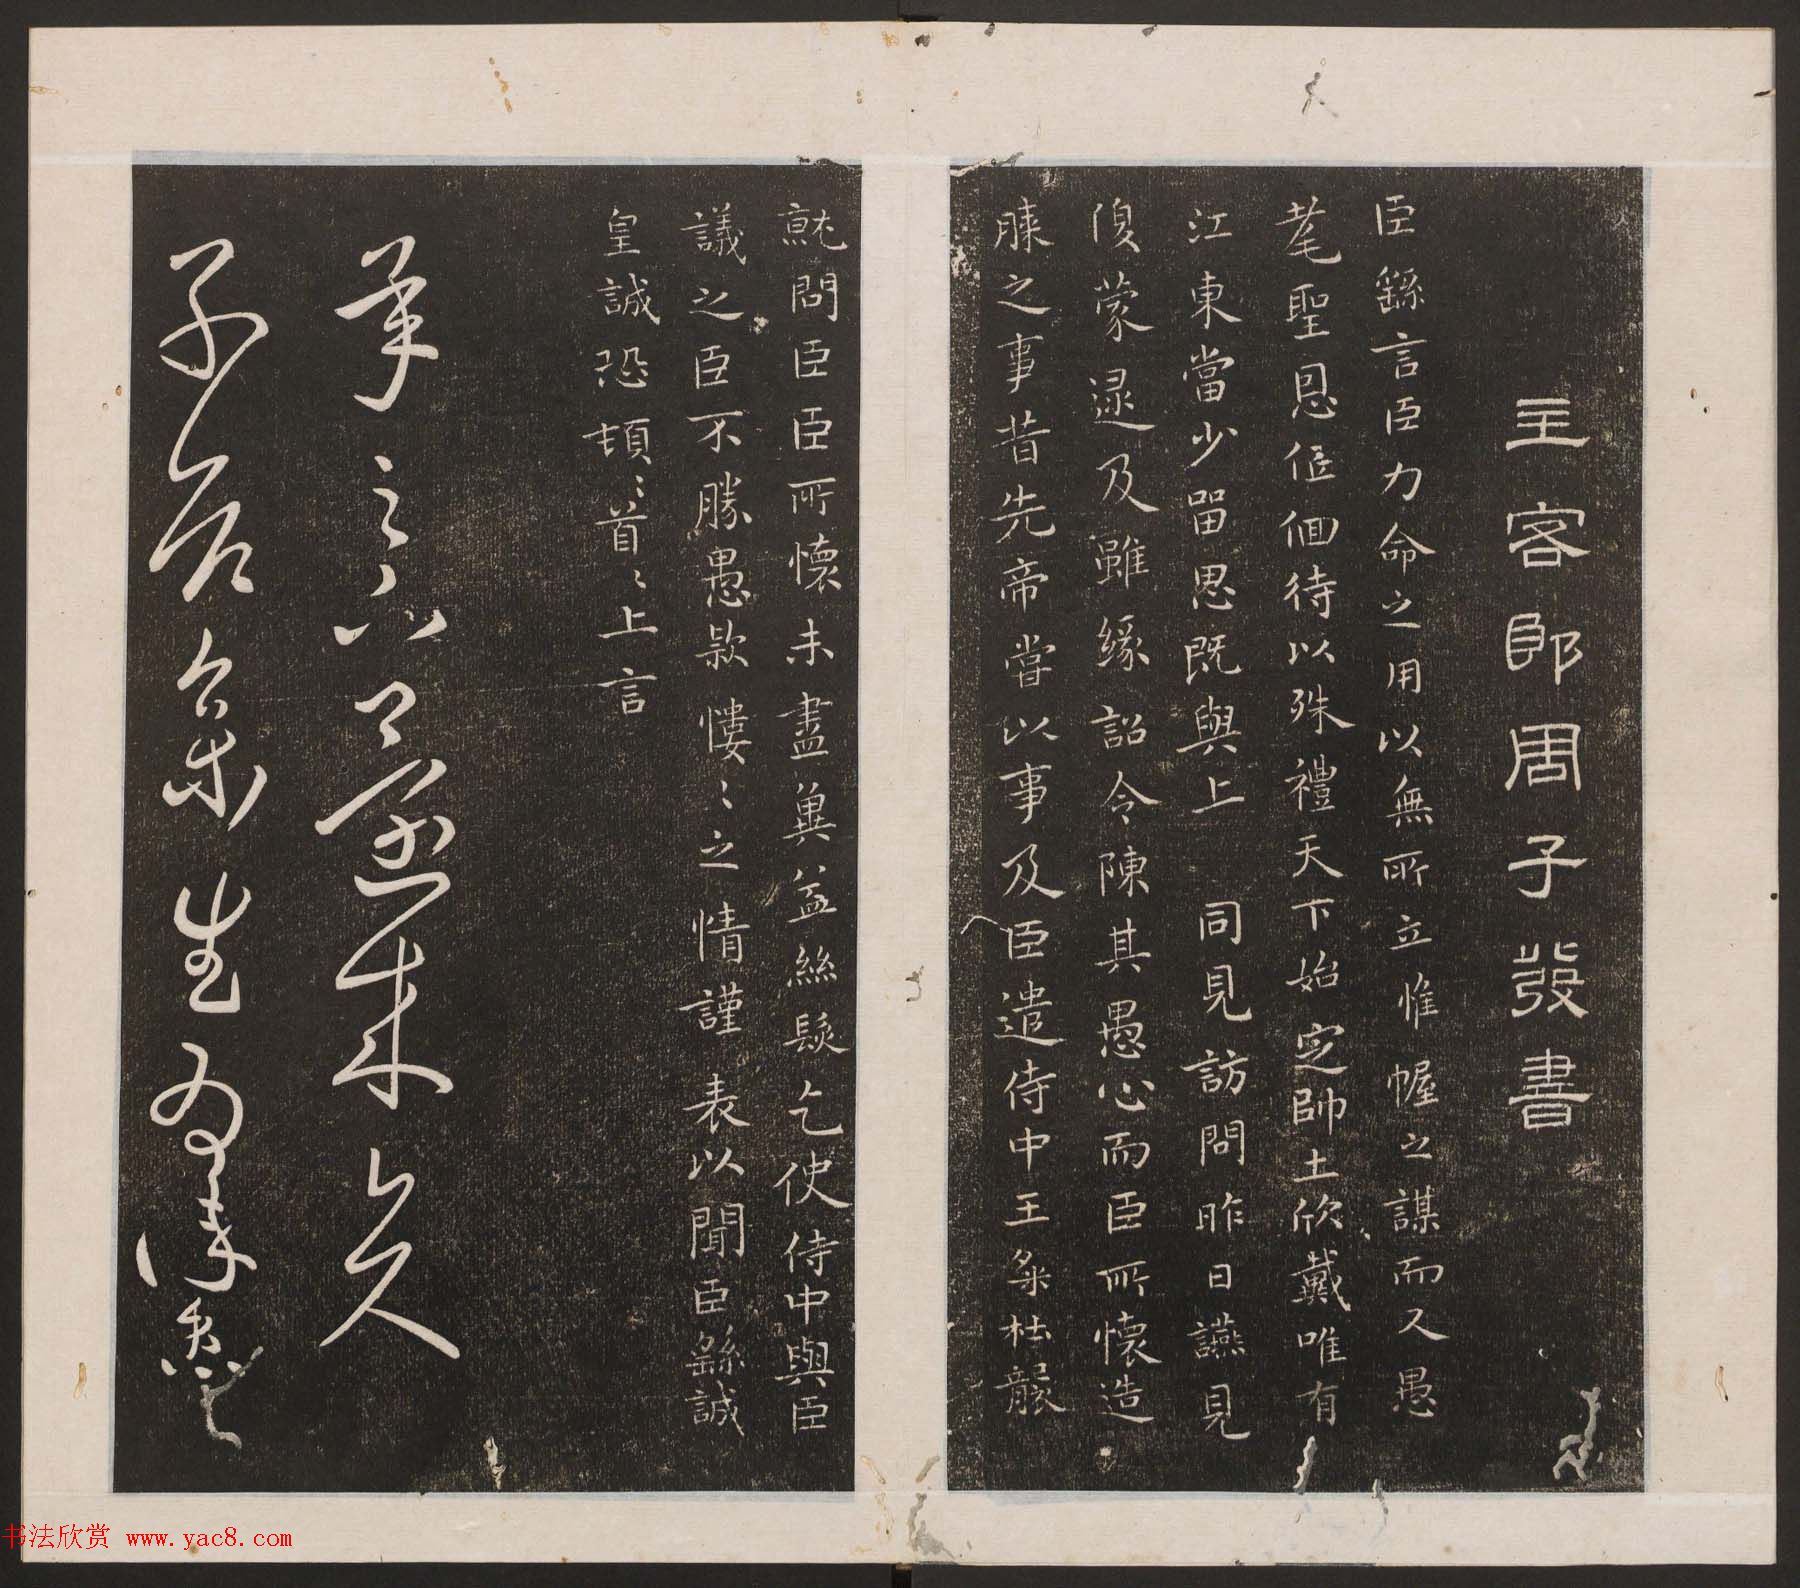 主客郎周子發書
臣繇言臣力命之用以無所立惟幄之謀而又愚
耄聖恩低佪待以殊禮天下始定帥土欣戴唯有
江東當少留思既與上 同見訪問昨日讌見
復蒙逮及雖緣詔令陳其愚心而臣所懷造
膝之事昔先帝嘗以事及臣遣侍中王粲杜襲
就問臣臣所懷未盡冀益絲髮乞使侍中與臣
議之臣不勝愚款慺〻之情謹表以聞臣繇誠
皇誠恐頓〻首〻上言
书法欣赏 www.yac8.com